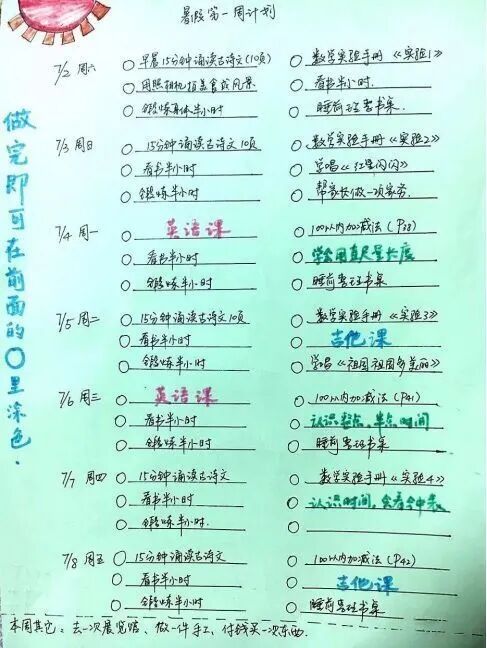 暑假第一周计划
做完即可在前面的○里涂色.
7/2 周六
○ 早晨15分钟诵读古诗文(10页) ○ 数学实验手册《实验1》
○ 用照相机拍美食或风景 ○ 看书半小时.
○ 锻炼身体半小时 ○ 睡前整书桌.
7/3 周日
○ 15分钟诵读古诗文10页 ○ 数学实验手册《实验2》
○ 看书半小时 ○ 学唱《红星闪闪》
○ 锻炼半小时 ○ 帮家长做一项家务.
7/4 周一
○ 英语课 ○ 100以内加减法(P38)
○ 看书半小时 ○ 学会用直尺量长度
○ 锻炼半小时 ○ 睡前整书桌
7/5 周二
○ 15分钟诵读古诗文10页 ○ 数学实验手册《实验3》
○ 看书半小时 ○ 吉他课
○ 锻炼半小时 ○ 学唱《祖国祖国多美丽》
7/6 周三
○ 英语课 ○ 100以内加减法(P41)
○ 看书半小时 ○ 认识整点、半点时间
○ 锻炼半小时 ○ 睡前整书桌
7/7 周四
○ 15分钟诵读古诗文 ○ 数学实验手册《实验4》
○ 看书半小时 ○ 认识时间,会看钟表
○ 锻炼半小时. ○
7/8 周五
○ 15分钟诵读古诗文 ○ 100以内加减法(P42)
○ 看书半小时 ○ 吉他课
○ 锻炼半小时 ○ 睡前整书桌
本周其它:去一次展览馆、做一件手工、付钱买一次东西.